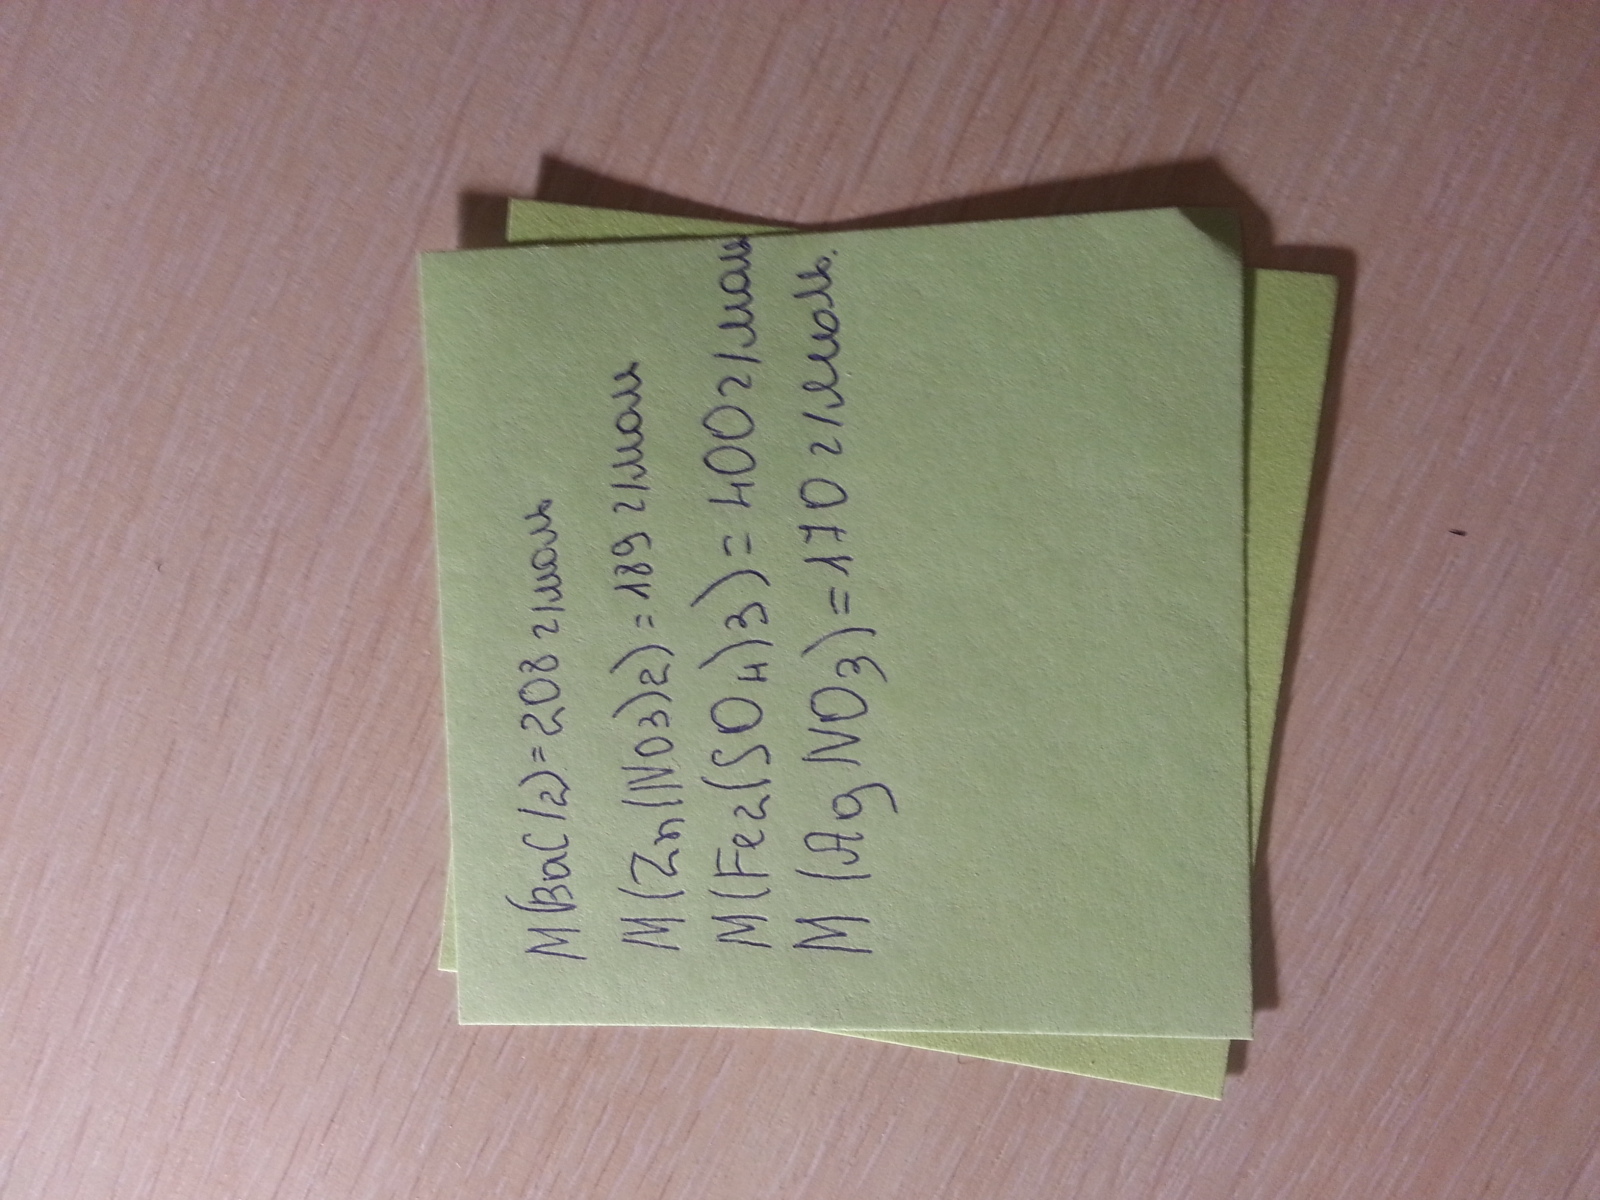 M(BaCl2)=208 г/моль
M(Zn(NO3)2)=189 г/моль
M(Fe2(SO4)3)=400г/моль
M(AgNO3)=170 г/моль.